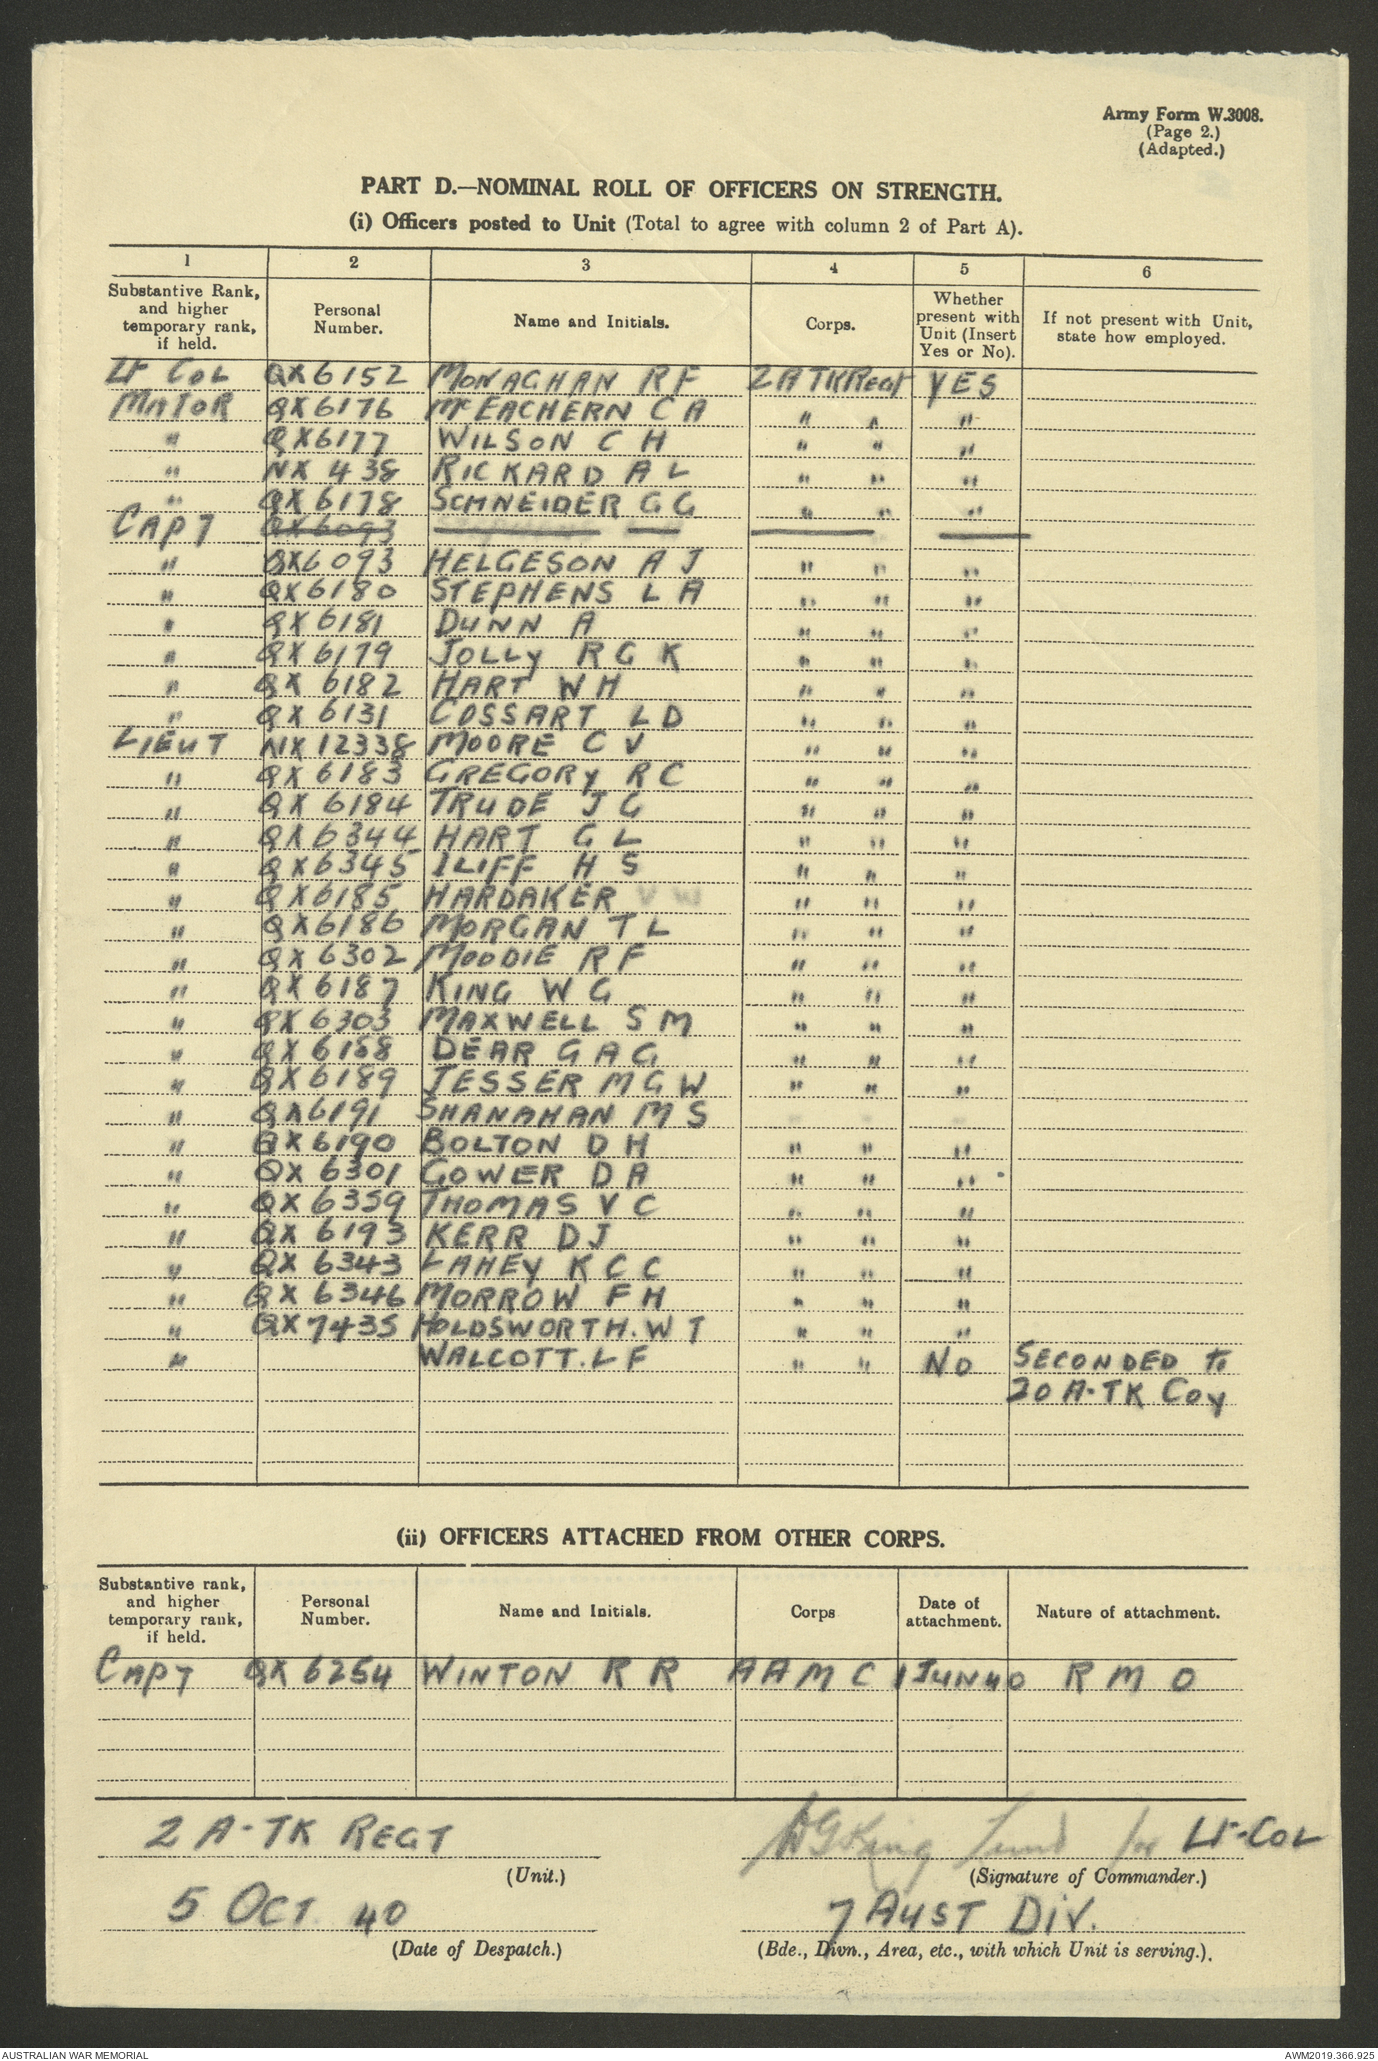 Army Form W.3008.
(Page 2.)
(Adapted.)
PART D.—NOMINAL ROLL OF OFFICERS ON STRENGTH.
(i) Officers posted to Unit (Total to agree with column 2 of Part A).
1 2 3 4 5 6
Substantive Rank, and higher temporary rank, if held. Personal Number. Name and Initials. Corps. Whether present with Unit (Insert Yes or No). If not present with Unit, state how employed.
Lt COL QX6152 MONAGHAN R F 2ATKRegt YES
MAJOR QX6176 McEACHERN C A " " "
" QX6177 WILSON C H " " "
" NX 438 RICKARD A L " " "
" QX 6178 SCHNEIDER G G " " "
CAPT QX6093
" QX6093 HELGESON A J " " "
" QX6180 STEPHENS L A " " "
" QX6181 DUNN A " " "
" QX6179 JOLLY R G K " " "
" QX 6182 HART W H " " "
" QX 6131 COSSART L D " " "
LIEUT NX12338 MOORE C V " " "
" QX 6183 GREGORY R C " " "
" QX 6184 TRUDE J G " " "
" QX6344 HART G L " " "
" QX6345 ILIFF H S " " "
" QX6185 HARDAKER V W " " "
" QX6186 MORGAN T L " " "
" QX 6302 MOODIE R F " " "
" QX 6187 KING W G " " "
" QX 6303 MAXWELL S M " " "
" QX 6188 DEAR G A G " " "
" QX 6189 JESSER M G W " " "
" QX6191 SHANAHAN M S
" QX 6190 BOLTON D H " " "
" QX 6301 GOWER D A " " "
" QX 6359 THOMAS V C " " "
" QX 6193 KERR D J " " "
" QX 6343 LAHEY K C C " " "
" QX 6346 MORROW F H " " "
" QX7435 HOLDSWORTH. W T " " "
" WALCOTT. L F " " NO SECONDED to
20 A-TK Coy
(ii) OFFICERS ATTACHED FROM OTHER CORPS.
Substantive rank, and higher temporary rank, if held. Personal Number. Name and Initials. Corps Date of attachment. Nature of attachment.
CAPT QX 6254 WINTON R R A A M C 1JUN40 R M O
2 A-TK REGT WGKing for Lt-COL
(Unit.) (Signature of Commander.)
5 OCT 40 7 AUST DIV.
(Date of Despatch.) (Bde., Divn., Area, etc., with which Unit is serving.).
AUSTRALIAN WAR MEMORIAL AWM2019.366.925